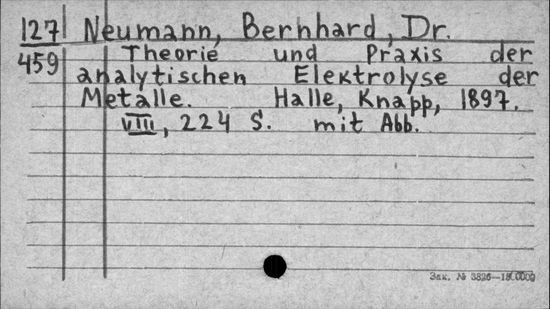 127 Neumann, Bernhard, Dr.
459 Theorie und Praxis der
analytischen Elektrolyse der
Metalle. Halle, Knapp, 1897.
VIII, 224 S. mit Abb.
Зак. № 3826—